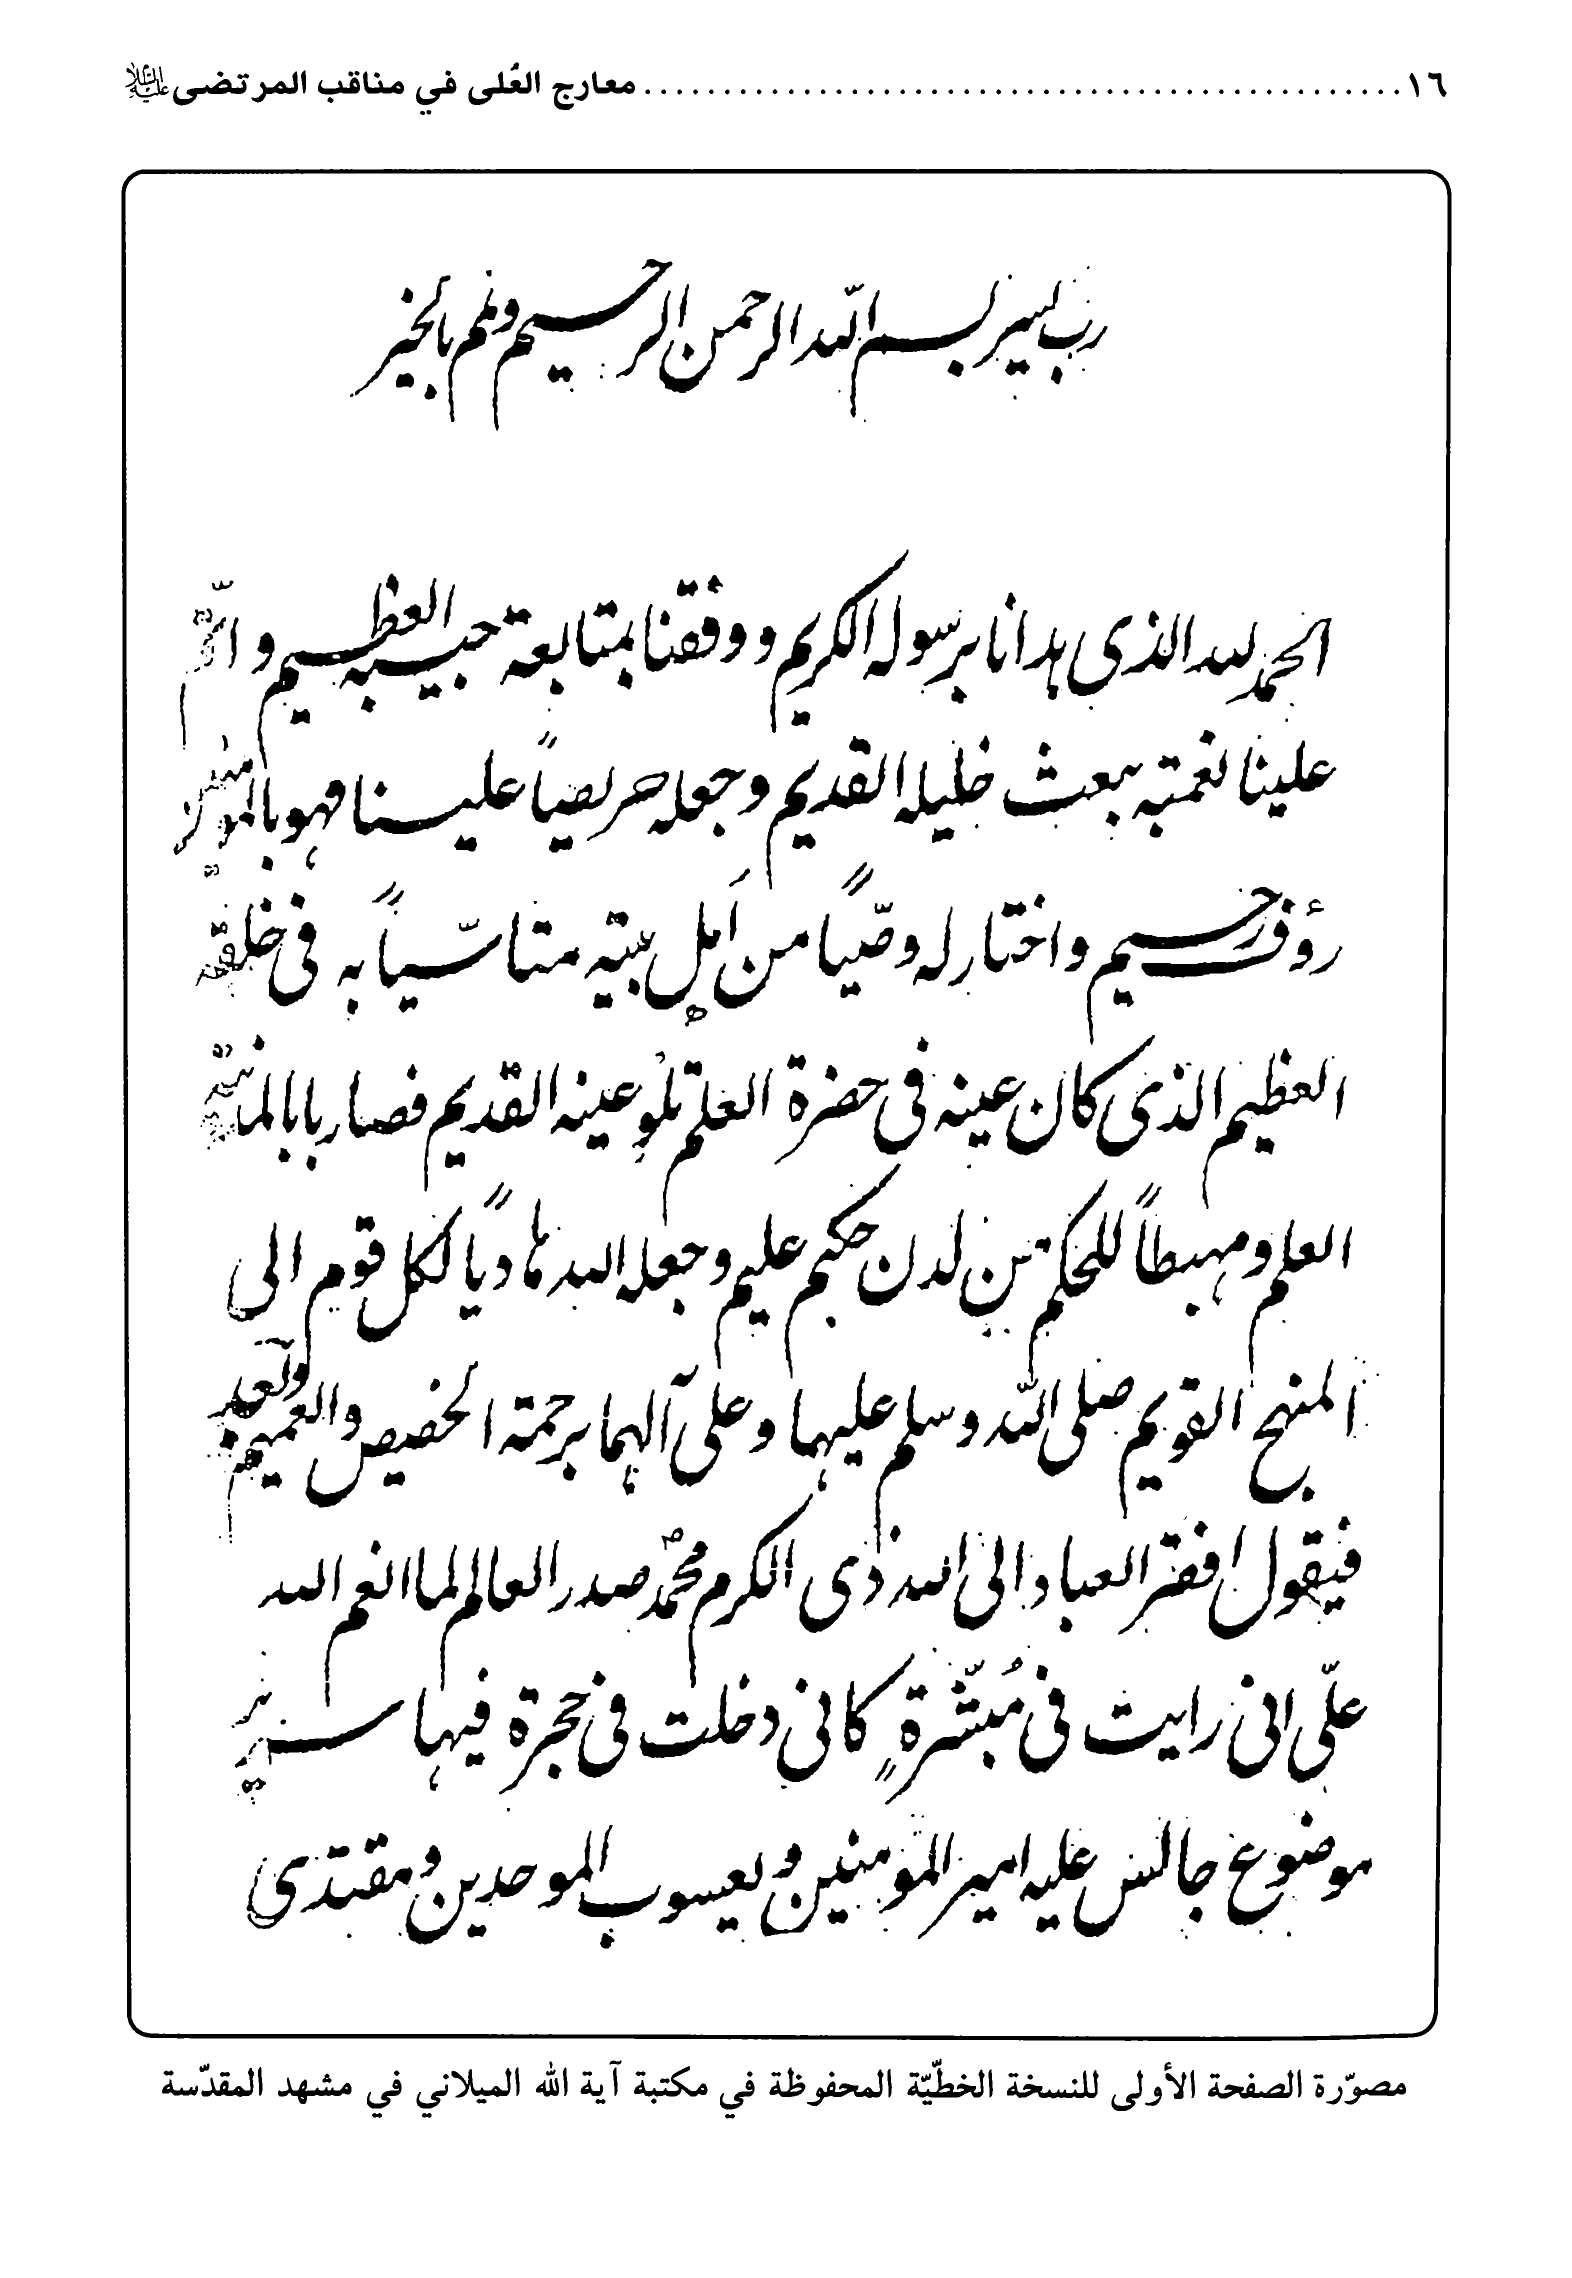 ١٦ معارج العُلى في مناقب المرتضى عليه السلام
رب يسر بسم الله الرحمن الرحيم وتمم بالخير
الحمد لله الذى هدانا برسوله الكريم ووفقنا بمتابعة حبيبه العظيم و اتمّ
علينا نعمته ببعث خليله القديم وجعله حريصاً علينا فهو بالمومنين
رؤف رحيم واختار له وصّيًا من اَهل بيته متاسّياً به فى خلقه
العظيم الذى كان عينه فى حضرة العلم تلو عينه القديم فصار بابا لمدينة
العلم ومهبطاً للحكمة من لدن حكيم عليم وجعله الله هادياً لكل قوم الى
المنهج القويم صلى الله وسلم عليهما وعلى آلهما برحمة الخصيص والعميم وبعد
فيقول افقر العباد الى الله ذى الكرم محمّد صدر العالم لما انعم الله
علّى انى رايت فى مُبشّرةٍ كانى دخلت فى حجرة فيها سرير
موضوع جالس عليه امير المومنين و يعسوب الموحدين و مقتدى
مصوّرة الصفحة الأولى للنسخة الخطيّة المحفوظة في مكتبة آية الله الميلاني في مشهد المقدّسة